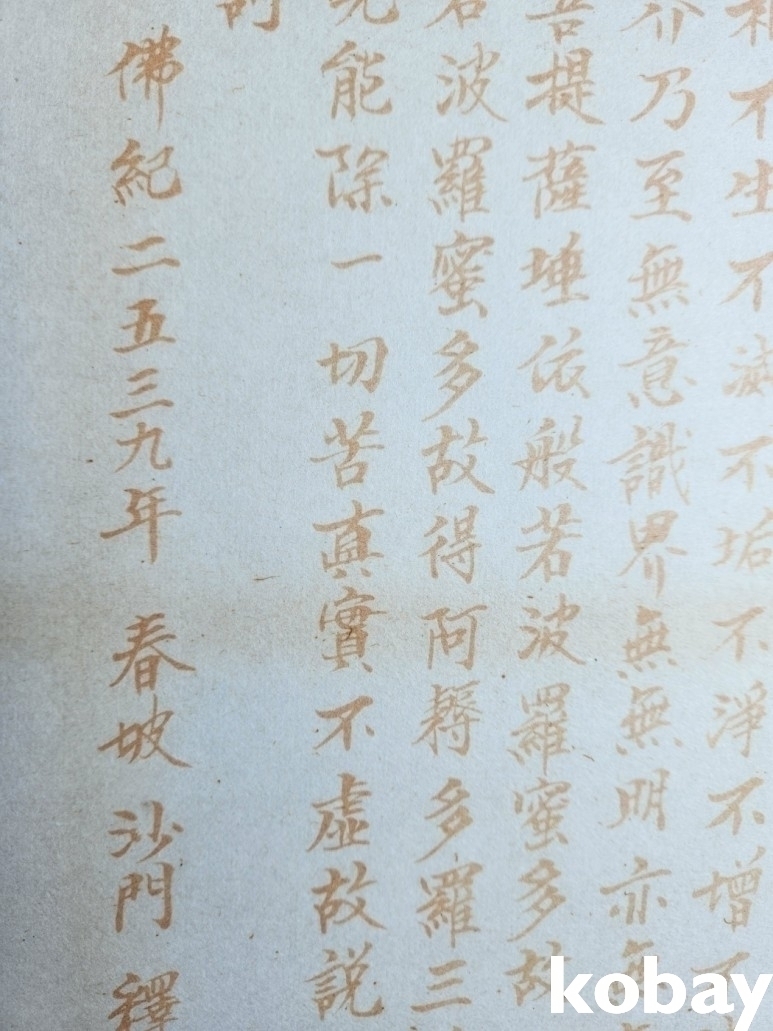 不生不滅不垢不淨不增
乃至無意識界無無明亦無
菩提薩埵依般若波羅蜜多故
若波羅蜜多故得阿耨多羅三
能除一切苦真實不虛故説
佛紀二五三九年 春坡 沙門 釋
kobay